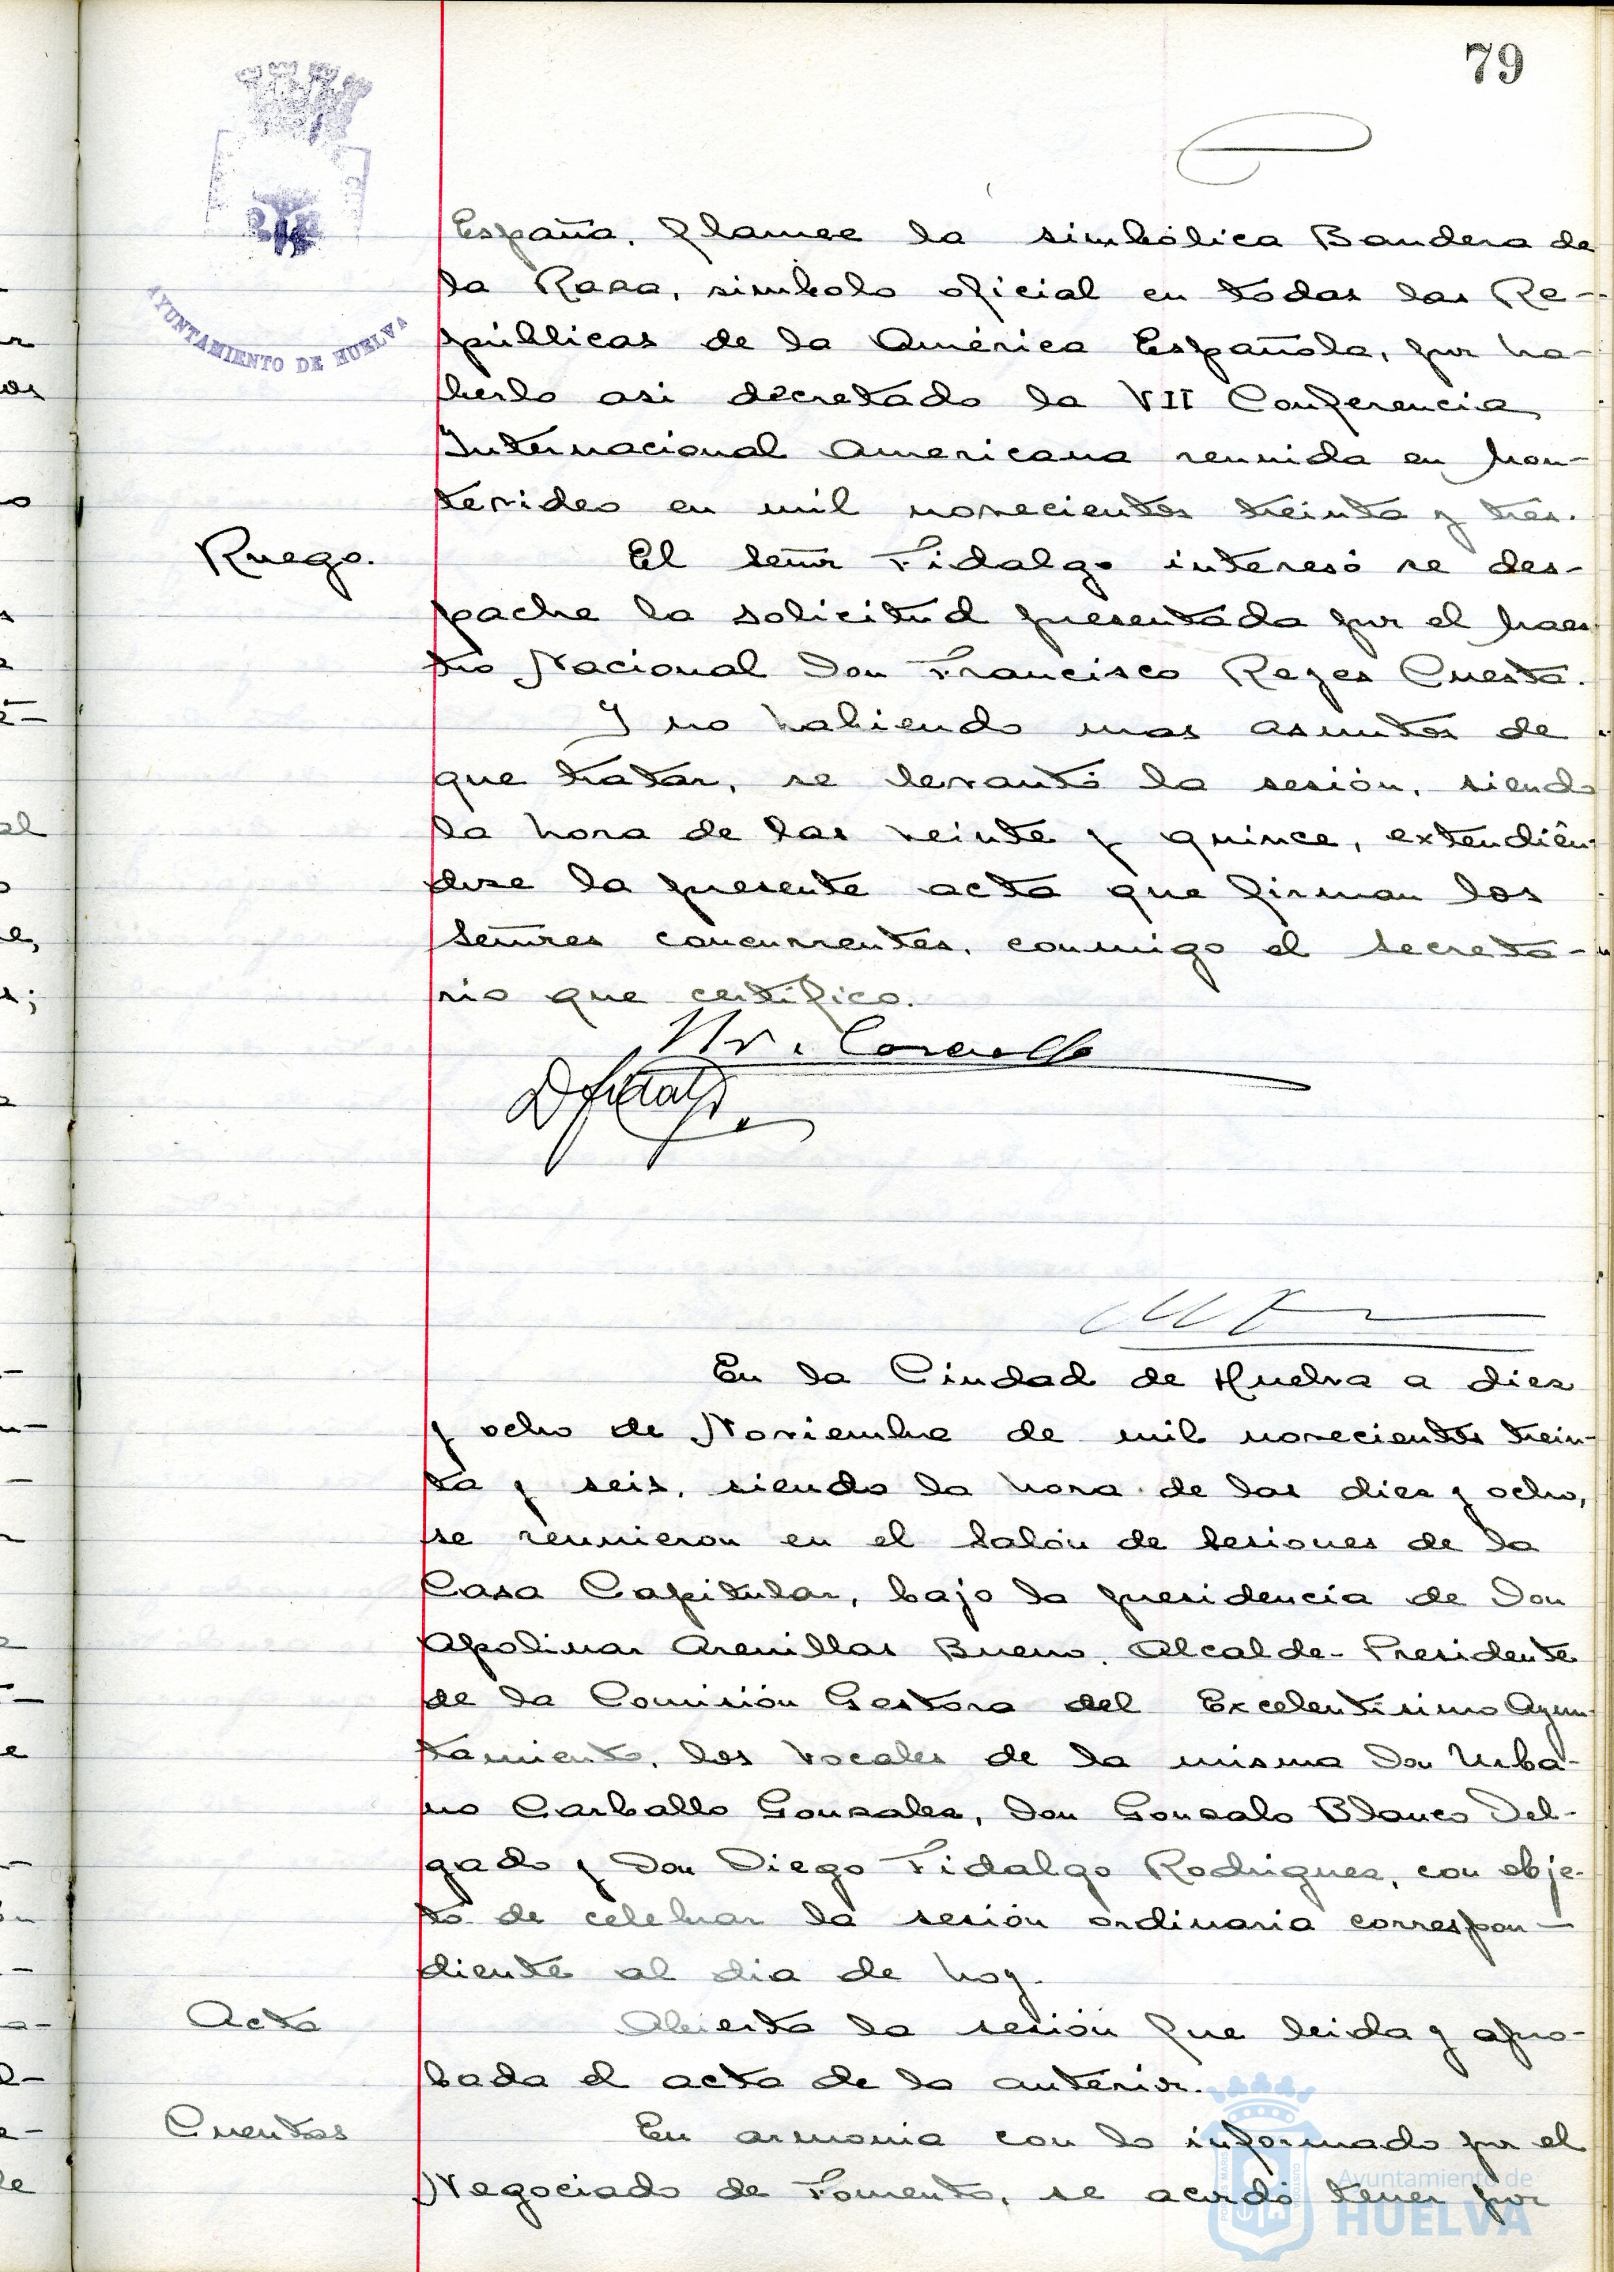 79
AYUNTAMIENTO DE HUELVA
España, flamee la simbólica Bandera de
la Raza, simbolo oficial en todas las Re-
públicas de la América Española, por ha-
berlo asi decretado la VII Conferencia
Internacional Americana reunida en Mon-
tevideo en mil novecientos treinta y tres.
Ruego.
El señor Fidalgo interesó se des-
pache la solicitud presentada por el Maes
tro Nacional Don Francisco Reyes Cuesta.
Y no habiendo mas asuntos de
que tratar, se levantó la sesión, siendo
la hora de las veinte y quince, extendién-
dose la presente acta que firman los
señores concurrentes, conmigo el secreta-
rio que certifico.
D Fidalgo
En la Ciudad de Huelva a diez
y ocho de Noviembre de mil novecientos trein-
ta y seis, siendo la hora de las diez y ocho,
se reunieron en el Salón de Sesiones de la
Casa Capitular, bajo la presidencia de Don
Apolinar Arenillas Bueno, Alcalde-Presidente
de la Comisión Gestora del Excelentísimo Ayun-
tamiento, los Vocales de la misma Don Urba-
no Carballo Gonzalez, Don Gonzalo Blanco Del-
gado y Don Diego Fidalgo Rodriguez, con obje-
to de celebrar la sesión ordinaria correspon-
diente al dia de hoy.
Acta
Abierta la sesión fue leida y apro-
bada el acta de la anterior.
Cuentas
En armonia con lo informado por el
Negociado de Fomento, se acordó tener por
Ayuntamiento de
HUELVA